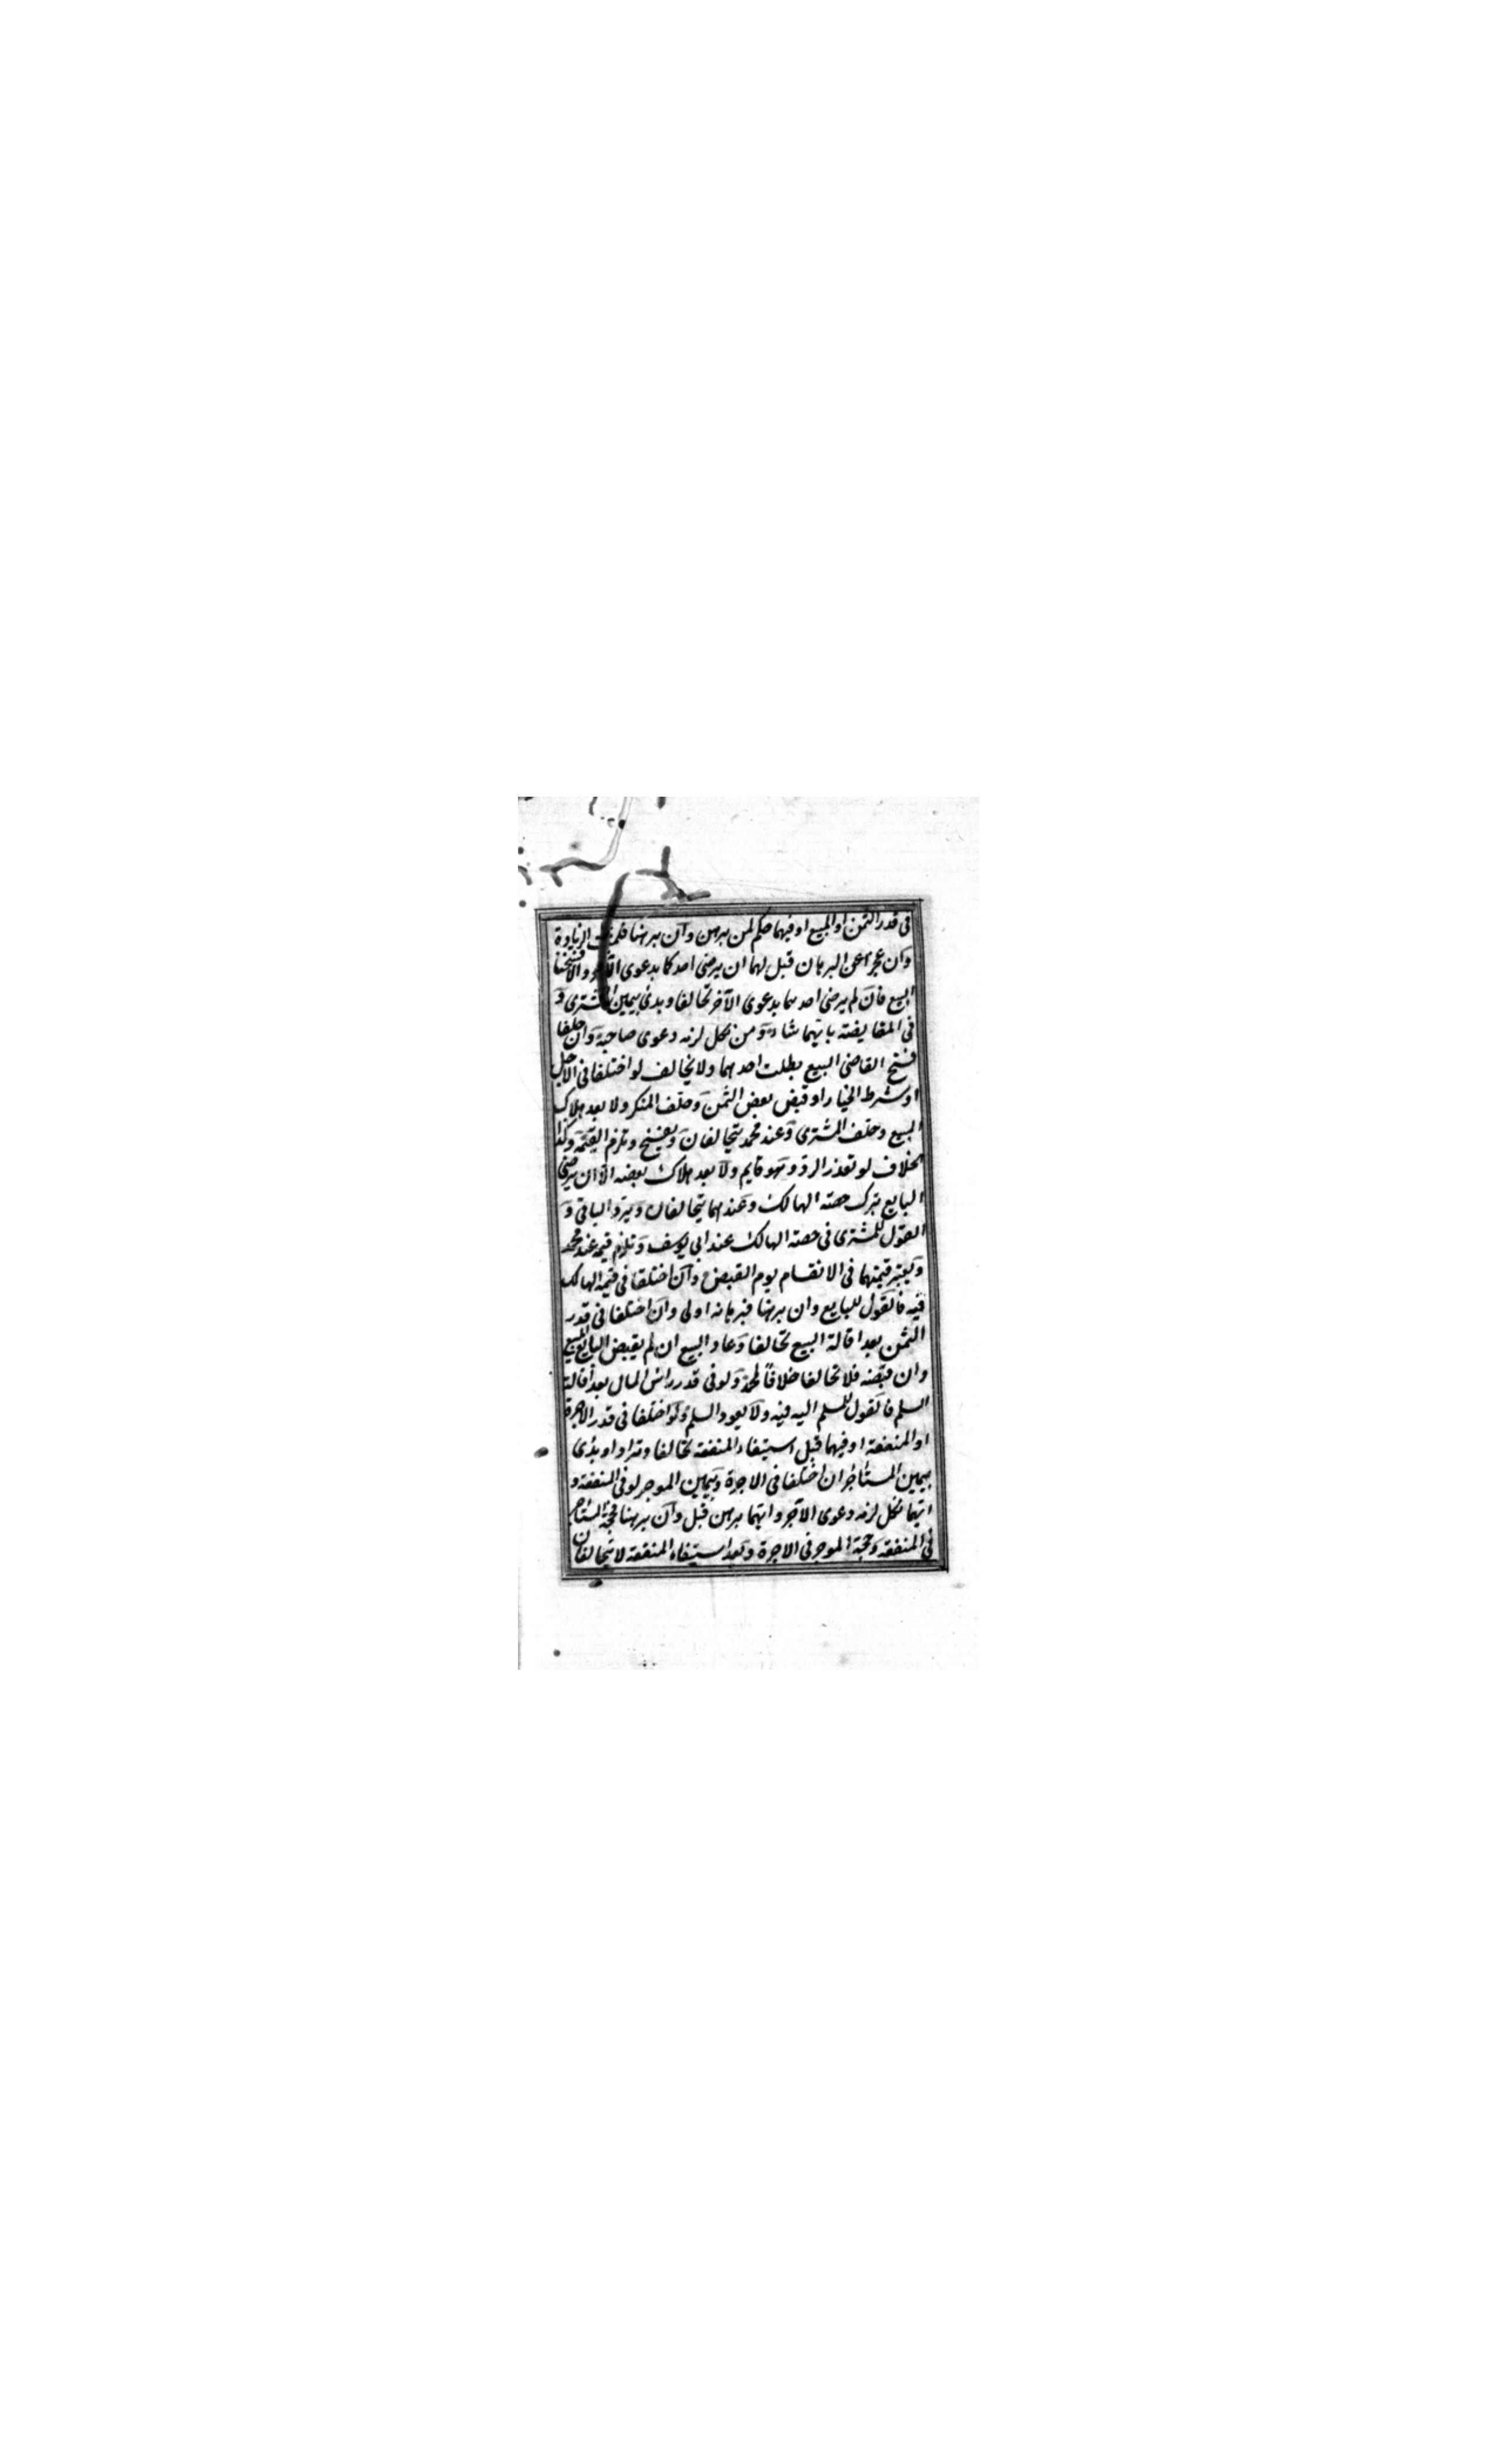 فى قدر الثمن او المبيع او فيهما حكم لمن برهن وان برهنا فلمثبت الزيادة
وان عجزا عن البرهان قيل لهما ان يرضى احدكما بدعوى الآخر والا فسخنا
البيع فان لم يرضى احدهما بدعوى الآخر تحالفا وبدئ بيمين المشترى و
فى المقايضة بايهما شاء ومن نكل لزمه دعوى صاحبه وان حلفا
فسخ القاضى البيع بطلب احدهما ولا تحالف لو اختلفا فى الاجل
او شرط الخيار او قبض بعض الثمن وحلف المنكر ولا بعد هلاك
المبيع وحلف المشترى وعند محمد يتحالفان ويفسخ وتلزم القيمة وكذا
الخلاف لو تعذر الرد وهو قايم ولا بعد هلاك بعضه الا ان يرضى
البايع بترك حصة الهالك وعندهما يتحالفان ويرد الباقى و
القول للمشترى فى حصة الهالك عند ابى يوسف وتلزم قيمته عند محمد
ويعتبر قيمتهما فى الانقسام يوم القبض وان اختلفا فى قيمة الهالك
فيه فالقول للبايع وان برهنا فبرهانه اولى وان اختلفا فى قدر
الثمن بعد اقالة البيع تحالفا وعاد البيع ان لم يقبض البايع المبيع
وان قبضه فلا تحالفا خلافاً لمحمد ولو فى قدر راس المال بعد اقالة
السلم فالقول للمسلم اليه فيه ولا يعود السلم ولو اختلفا فى قدر الاجرة
او المنفعة او فيهما قبل استيفاء المنفعة تحالفا وترادا وبدئ
بيمين المستأجر ان اختلفا فى الاجرة وبيمين الموجر لو فى المنفعة و
ايهما نكل لزمه دعوى الآخر وايهما برهن قبل وان برهنا فحجة المستأجر
فى المنفعة وحجة الموجر فى الاجرة وبعد استيفاء المنفعة لا يتحالفان